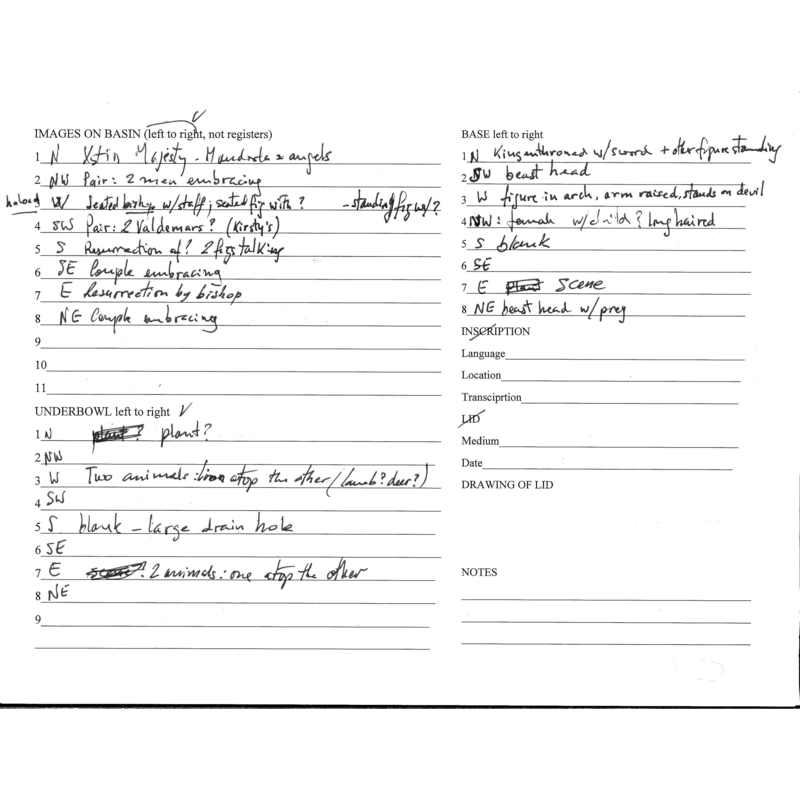 IMAGES ON BASIN (left to right, not registers)
1 N Xst in Majesty - Mandorla = angels
2 NW Pair: 2 men embracing
haloed 3 W Seated bishop w/staff; seated fig with ? - standing fig w/?
4 SW Pair: 2 Valdemars? (Kirsty's)
5 S Resurrection of? 2 figs talking
6 SE Couple embracing
7 E Resurrection by bishop
8 NE Couple embracing
9
10
11
UNDERBOWL left to right
1 N plant? plant?
2 NW
3 W Two animals: atop the other (lamb? deer?)
4 SW
5 S blank - large drain hole
6 SE
7 E scene? 2 animals: one atop the other
8 NE
9
BASE left to right
1 N King enthroned w/sword + other figure standing
2 SW beast head
3 W figure in arch, arm raised, stands on devil
4 NW: female w/child? long haired
5 S blank
6 SE
7 E Plant Scene
8 NE beast head w/ prey
INSCRIPTION
Language
Location
Transciprtion
LID
Medium
Date
DRAWING OF LID
NOTES